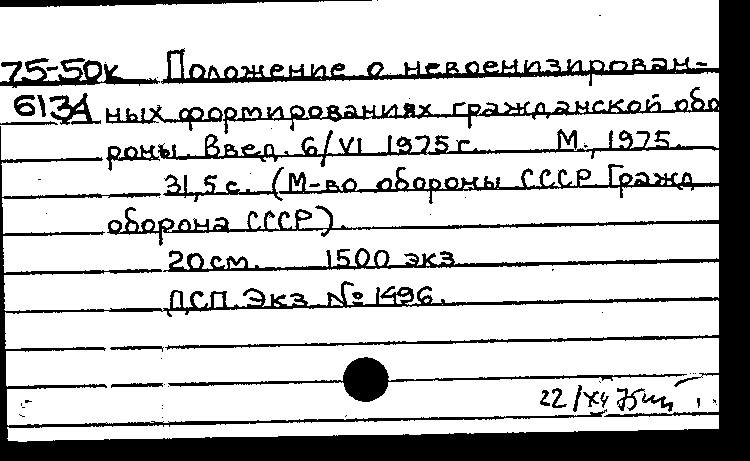 75-50к Положение о невоенизирован-
613А ных формированиях гражданской обо
роны. Введ. 6/VI 1975 г. М., 1975.
31,5 с. (М-во обороны СССР Гражд
оборона СССР).
20 см. 1500 экз
ДСП. Экз № 1496.
22/XII 75